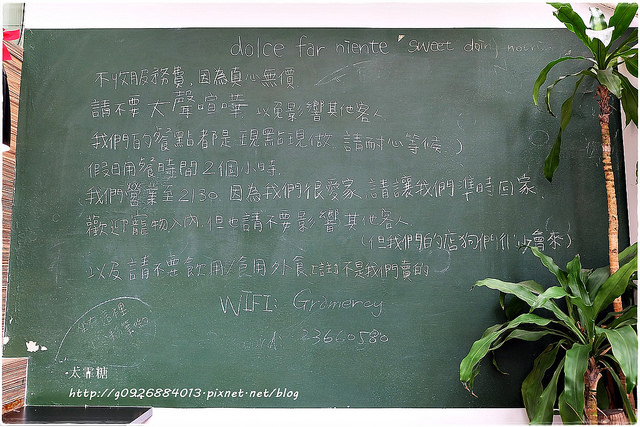 dolce far niente "sweet doing
不收服務費，因為真心無價
請不要大聲喧嘩 以免影響其他客人
我們的餐點都是現點現做，請耐心等候 :)
假日用餐時間2個小時.
我們營業至2130 因為我們很愛家，請讓我們準時回家.
歡迎寵物入內，但也請不要影響其他客人
(但我們的店狗們
會來)
以及請不要飲用/食用外食
不是我們賣的
WIFI: Gramercy
23660580
犬霈糖
http://g0926884013.pixnet.net/blog